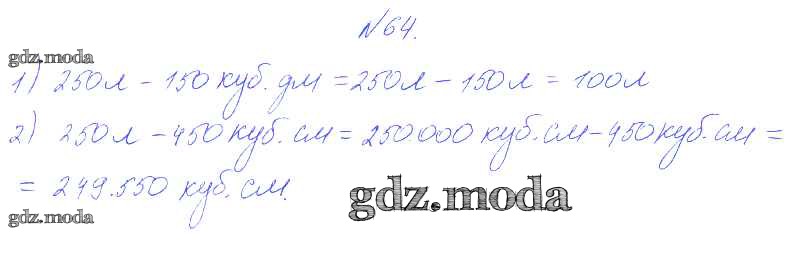 №64.
gdz.moda
1) 250л - 150 куб. дм = 250л - 150л = 100л
2) 250л - 450 куб. см = 250000 куб. см - 450 куб. см =
= 249.550 куб. см.
gdz.moda
gdz.moda